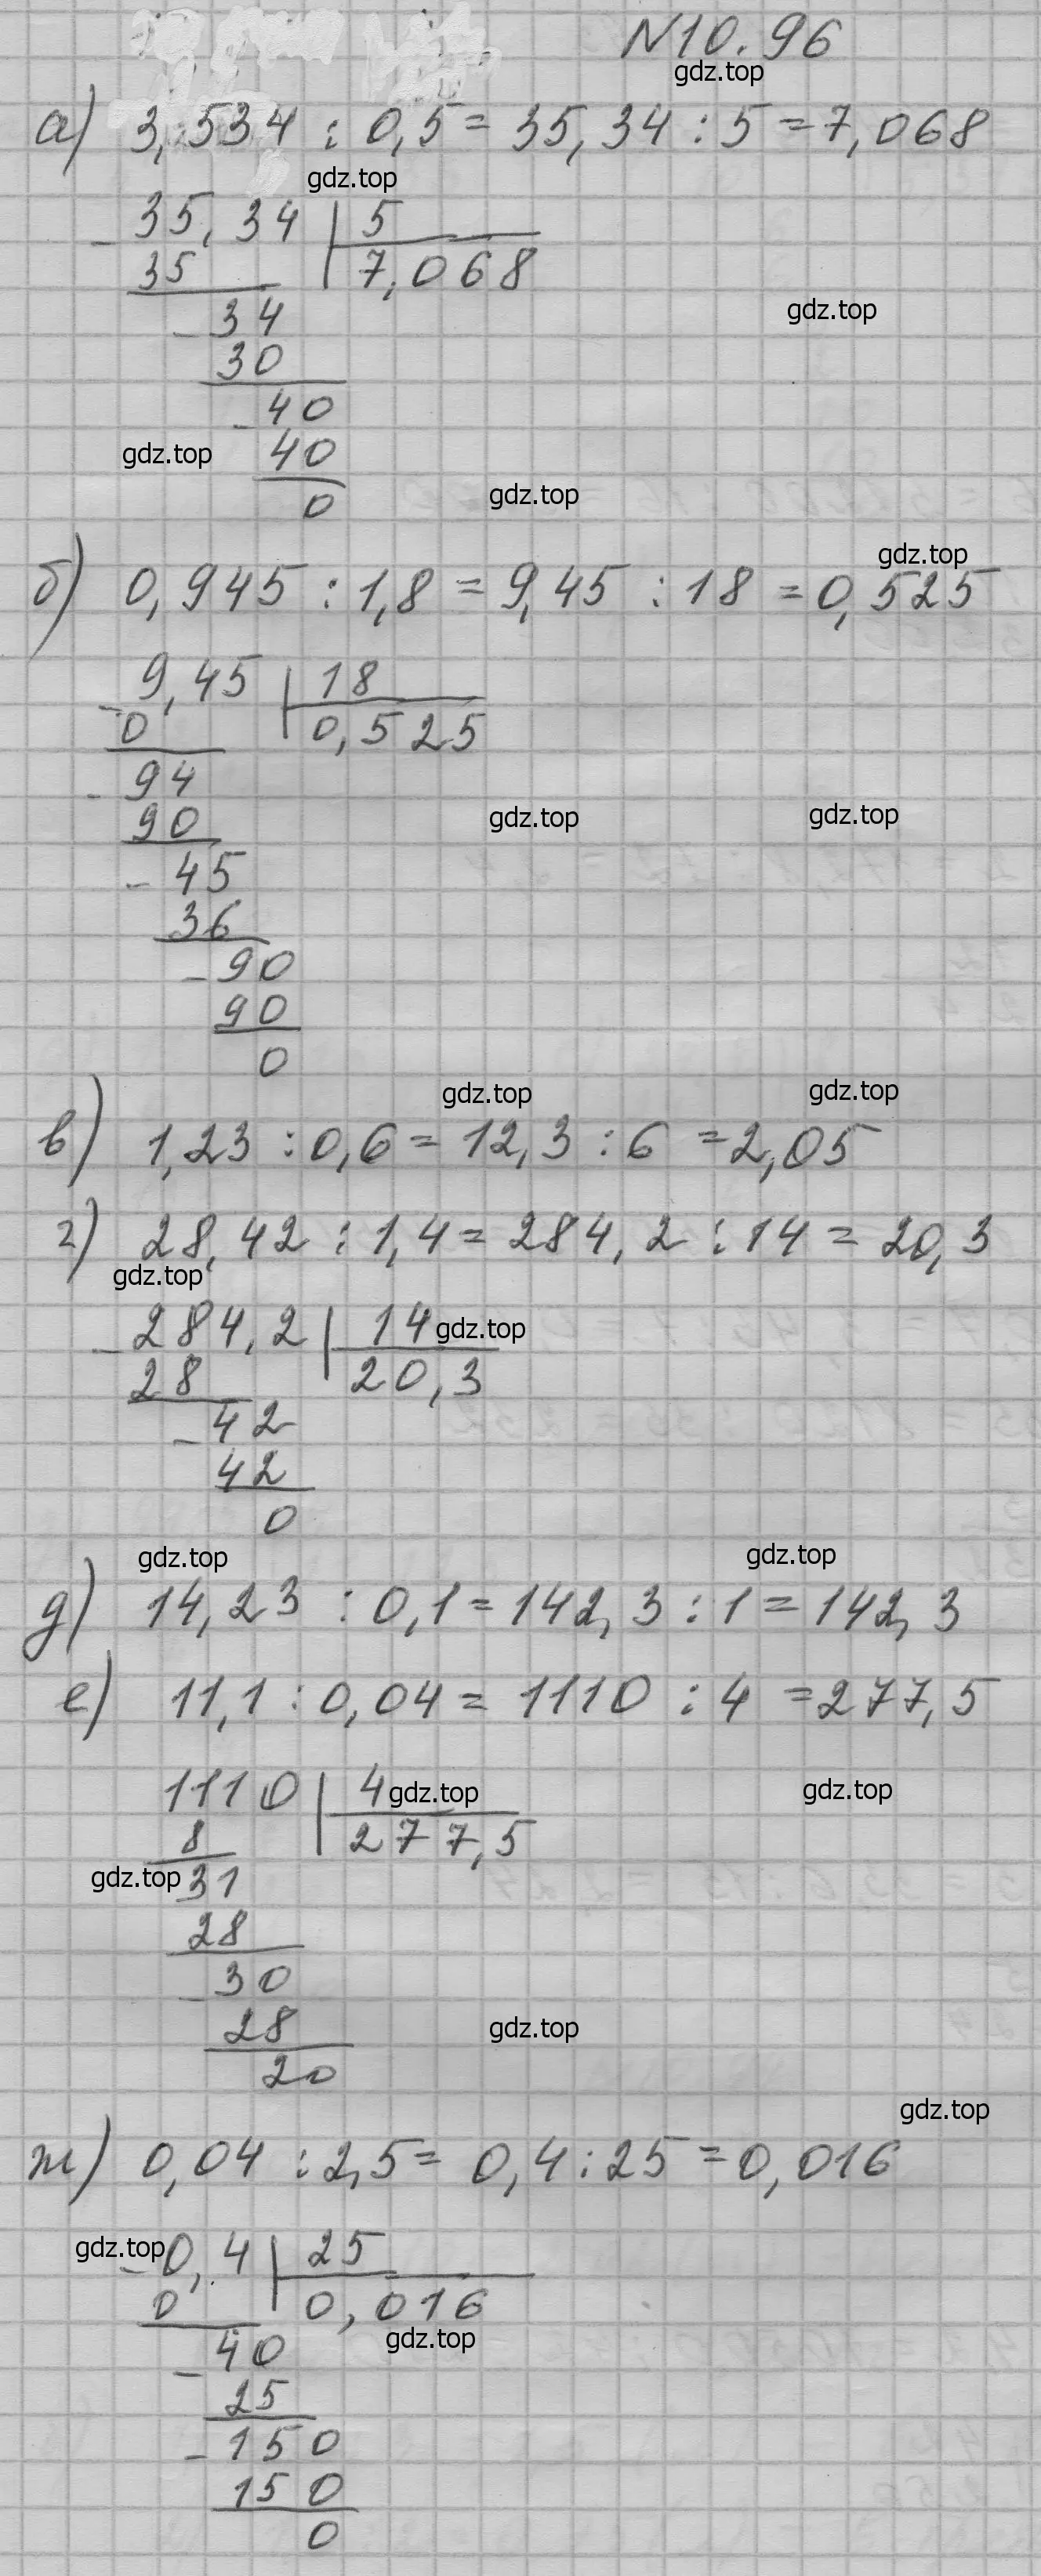 N10.96
gdz.top
а) 3,534 : 0,5 = 35,34 : 5 = 7,068
gdz.top
- 35,34 | 5
35 7,068
gdz.top
- 34
30
- 40
gdz.top
40
gdz.top
0
gdz.top
б) 0,945 : 1,8 = 9,45 : 18 = 0,525
- 9,45 | 18
0 0,525
- 94
90
gdz.top gdz.top
- 45
36
- 90
90
0
gdz.top gdz.top
в) 1,23 : 0,6 = 12,3 : 6 = 2,05
г) 28,42 : 1,4 = 284,2 : 14 = 20,3
gdz.top
- 284,2 | 14 gdz.top
28 20,3
- 42
42
0
gdz.top gdz.top
д) 14,23 : 0,1 = 142,3 : 1 = 142,3
е) 11,1 : 0,04 = 1110 : 4 = 277,5
1110 | 4 gdz.top gdz.top
8 277,5
gdz.top 31
28
- 30
28 gdz.top
20
gdz.top
ж) 0,04 : 2,5 = 0,4 : 25 = 0,016
gdz.top - 0,4 | 25
0 0,016
gdz.top
- 40
25
- 150
150
0